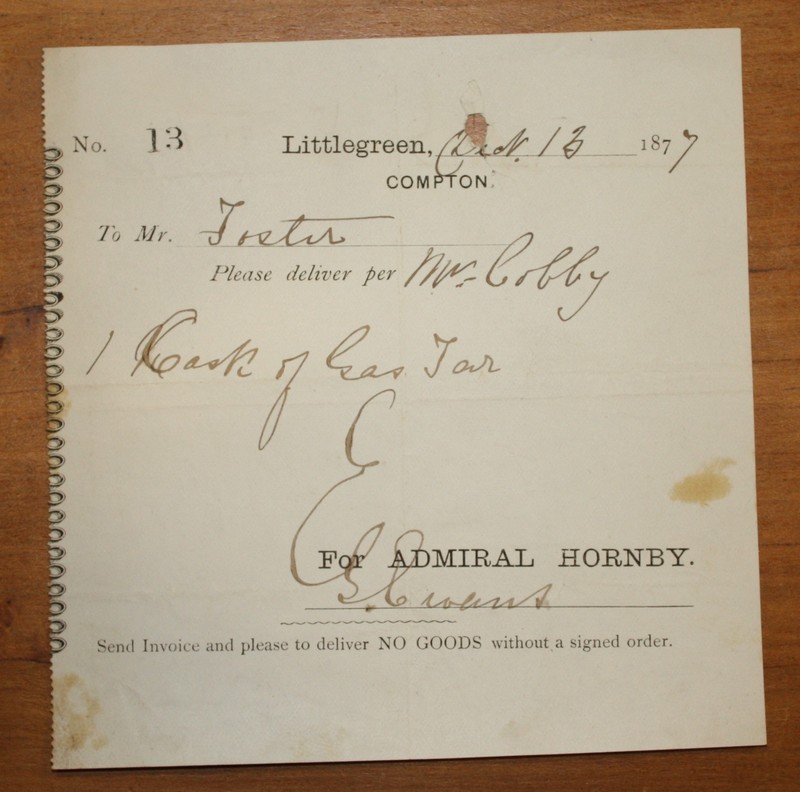 No. 13 Littlegreen, Dec. 13 1877
COMPTON.
To Mr. Foster
Please deliver per Mr Cobby
1 Cask of Gas Tar
For ADMIRAL HORNBY.
G. Evans
Send Invoice and please to deliver NO GOODS without a signed order.